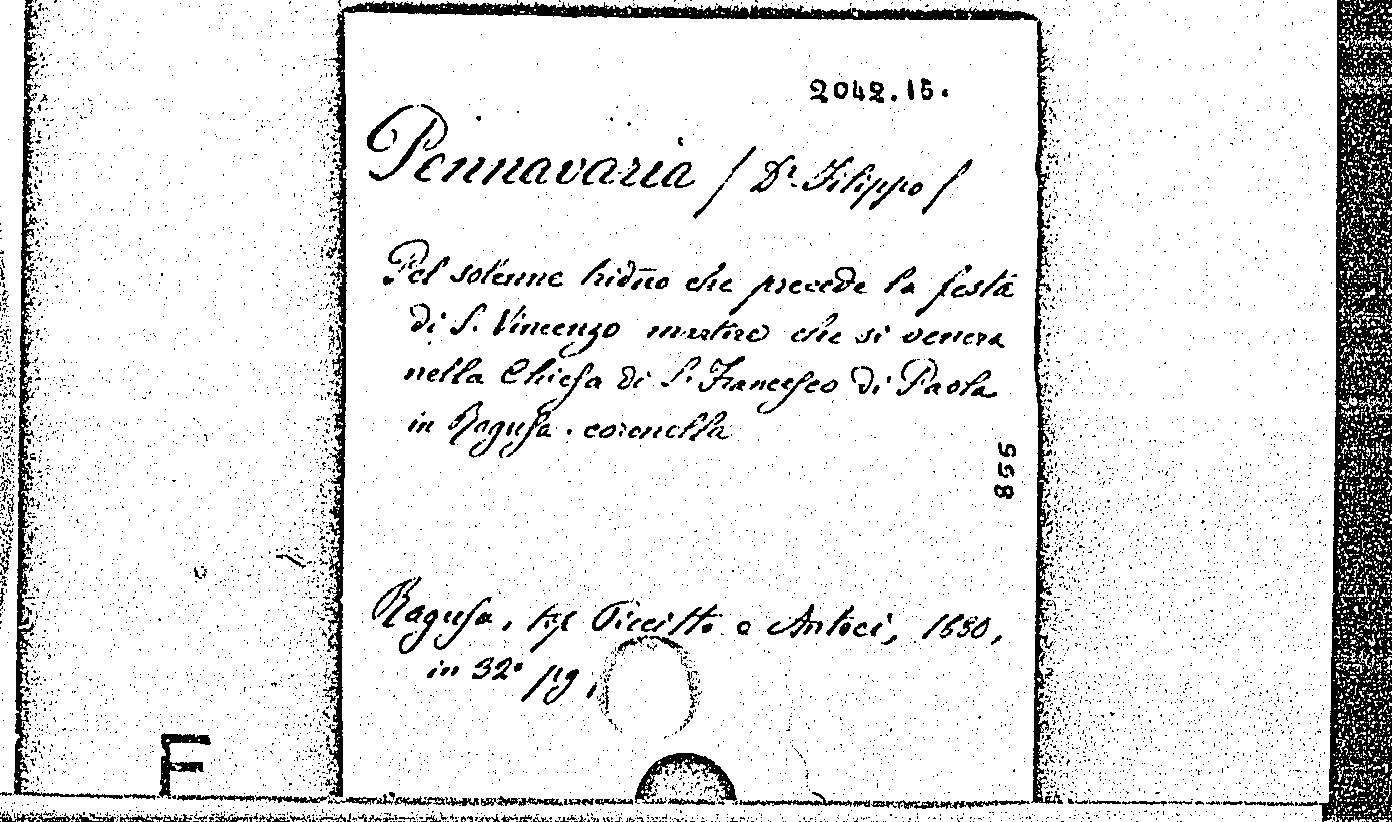 2042.15.
Pennavaria / Dr. Filippo /
Pel solenne triduo che precede la festa
di S. Vincenzo martire che si venera
nella Chiesa di S. Francesco di Paola
in Ragusa. coronella
855
Ragusa, tip Piccitto e Antoci, 1880,
in 32° pg.
F